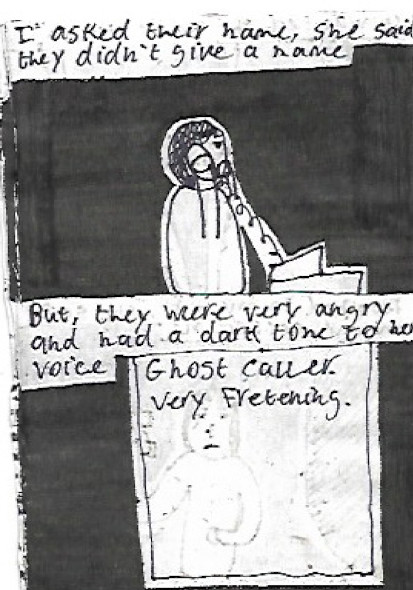 I asked their name, she said
they didn't give a name
But, they were very angry
and had a dark tone to her
voice
Ghost caller
very Fretening.